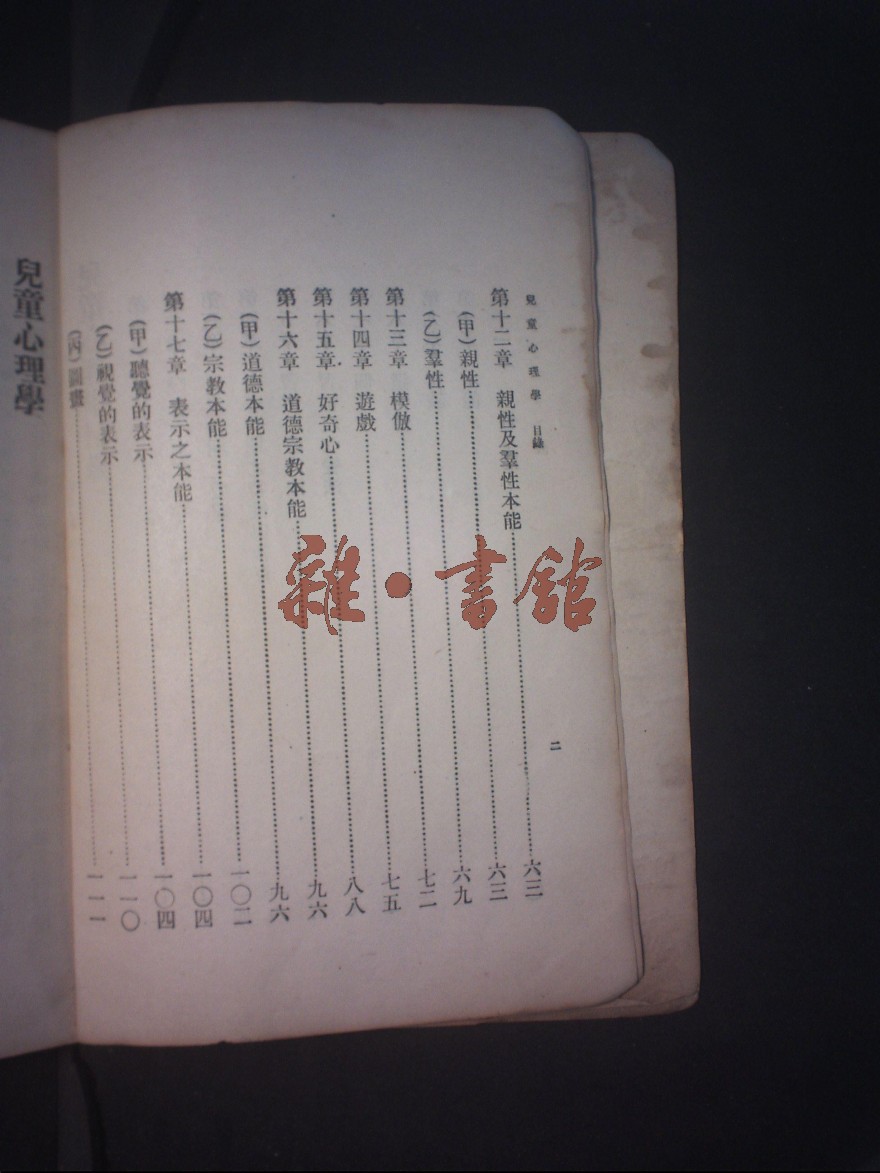 兒童心理學　目錄
二
第十二章　親性及羣性本能……六三
（甲）親性……六三
（乙）羣性……六九
第十三章　模倣……七二
第十四章　遊戲……七五
第十五章　好奇心……八八
第十六章　道德宗教本能……九六
（甲）道德本能……九六
（乙）宗教本能……一〇二
第十七章　表示之本能……一〇四
（甲）聽覺的表示……一〇四
（乙）視覺的表示……一一〇
（丙）圖畫……一一一
兒童心理學
雜·書館